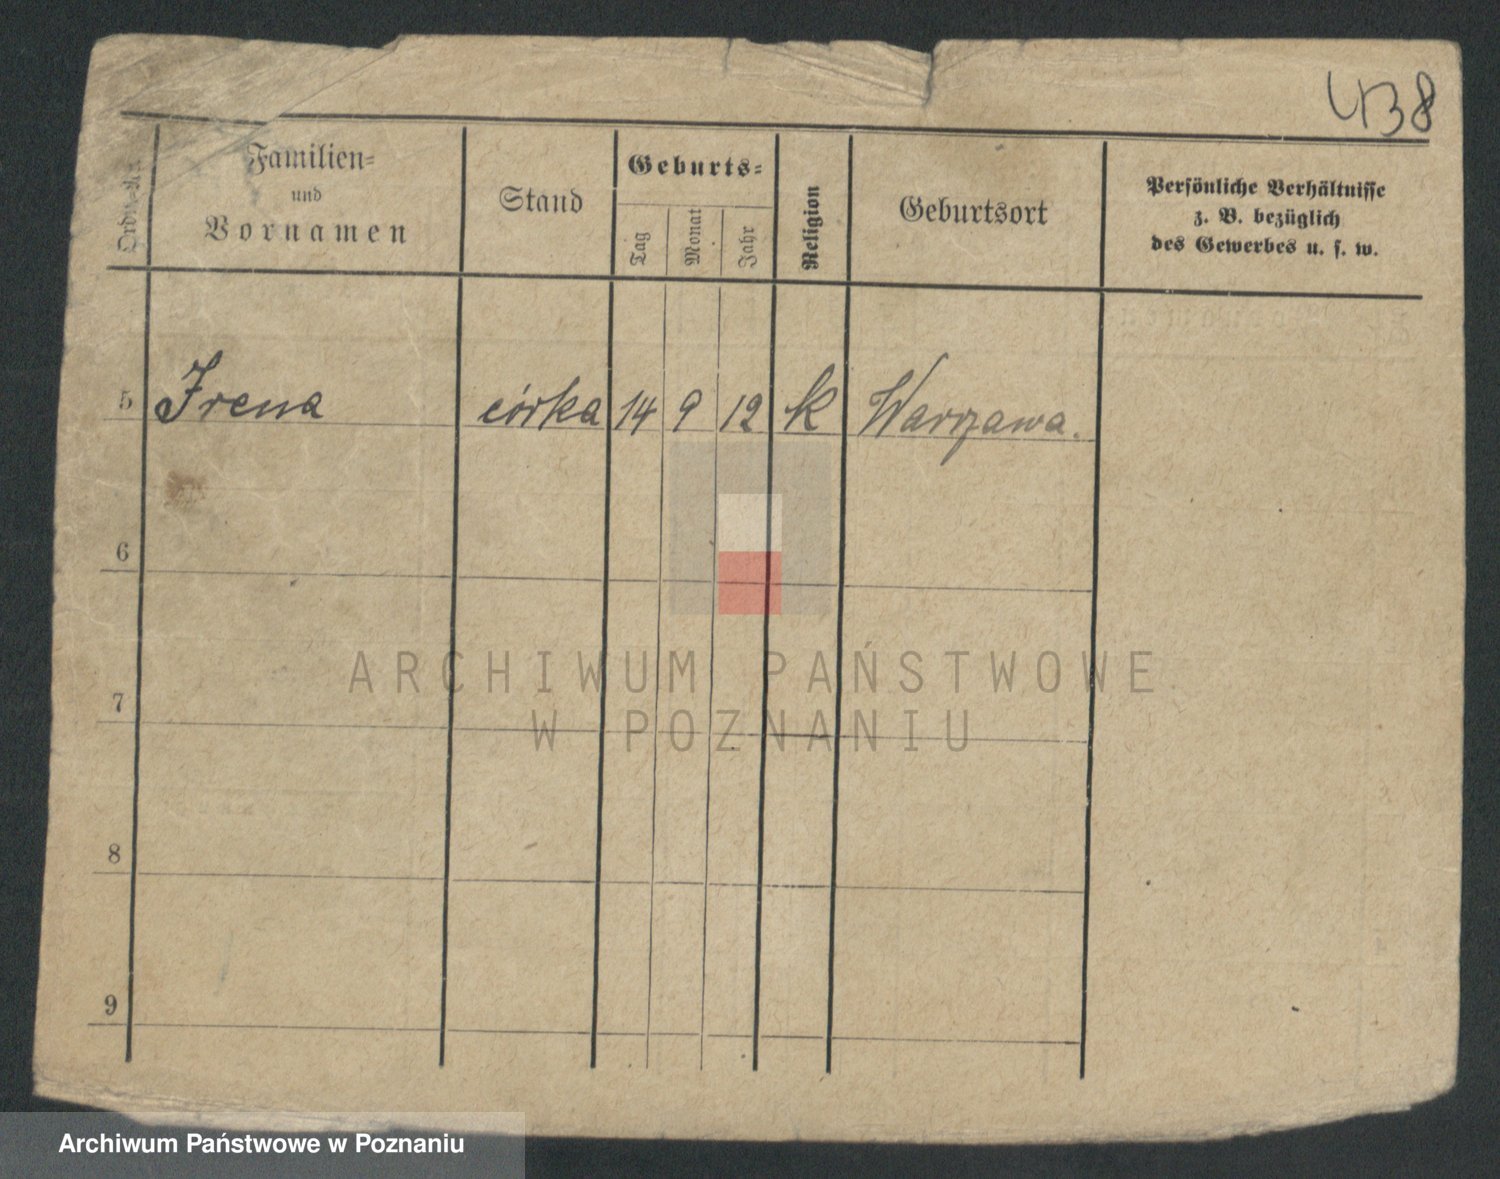 438
Ordn.-Nr.
Familien-
und
Vornamen
Stand
Geburts-
Tag
Monat
Jahr
Religion
Geburtsort
Persönliche Verhältnisse
z. B. bezüglich
des Gewerbes u. s. w.
5 Irena córka 14 9 12 k Warszawa.
6
ARCHIWUM PAŃSTWOWE
7
W POZNANIU
8
9
Archiwum Państwowe w Poznaniu